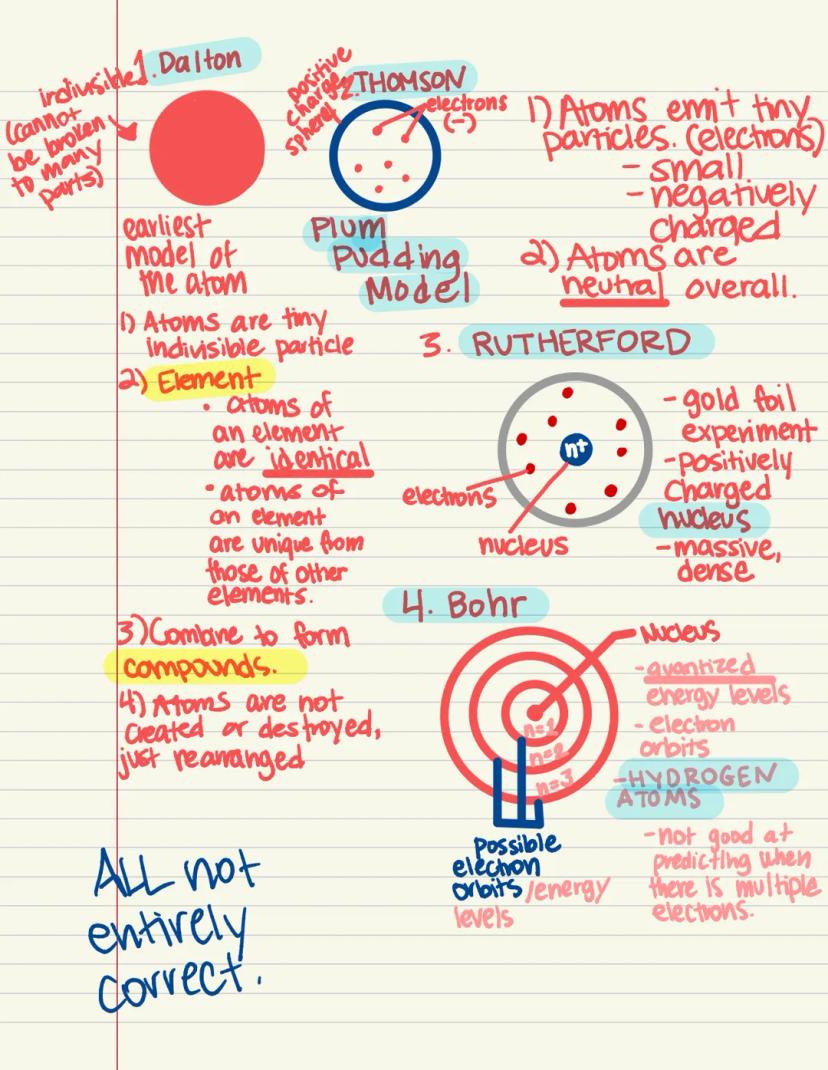 1. Dalton
indivisible
(cannot
be broken
to many
parts)
earliest
model of
the atom
1) Atoms are tiny
indivisible particle
2) Element
• atoms of
an element
are identical
• atoms of
an element
are unique from
those of other
elements.
3) Combine to form
compounds.
4) Atoms are not
created or destroyed,
just rearranged
2. THOMSON
positive
charge
sphere
electrons
(-)
Plum
Pudding
Model
1) Atoms emit tiny
particles. (electrons)
- small
- negatively
charged
2) Atoms are
neutral overall.
3. RUTHERFORD
n+
electrons
nucleus
- gold foil
experiment
- positively
charged
nucleus
- massive,
dense
4. Bohr
Nucleus
n=1
n=2
n=3
possible
electron
orbits /energy
levels
- quantized
energy levels
- electron
orbits
- HYDROGEN
ATOMS
- not good at
predicting when
there is multiple
electrons.
ALL not
entirely
correct.